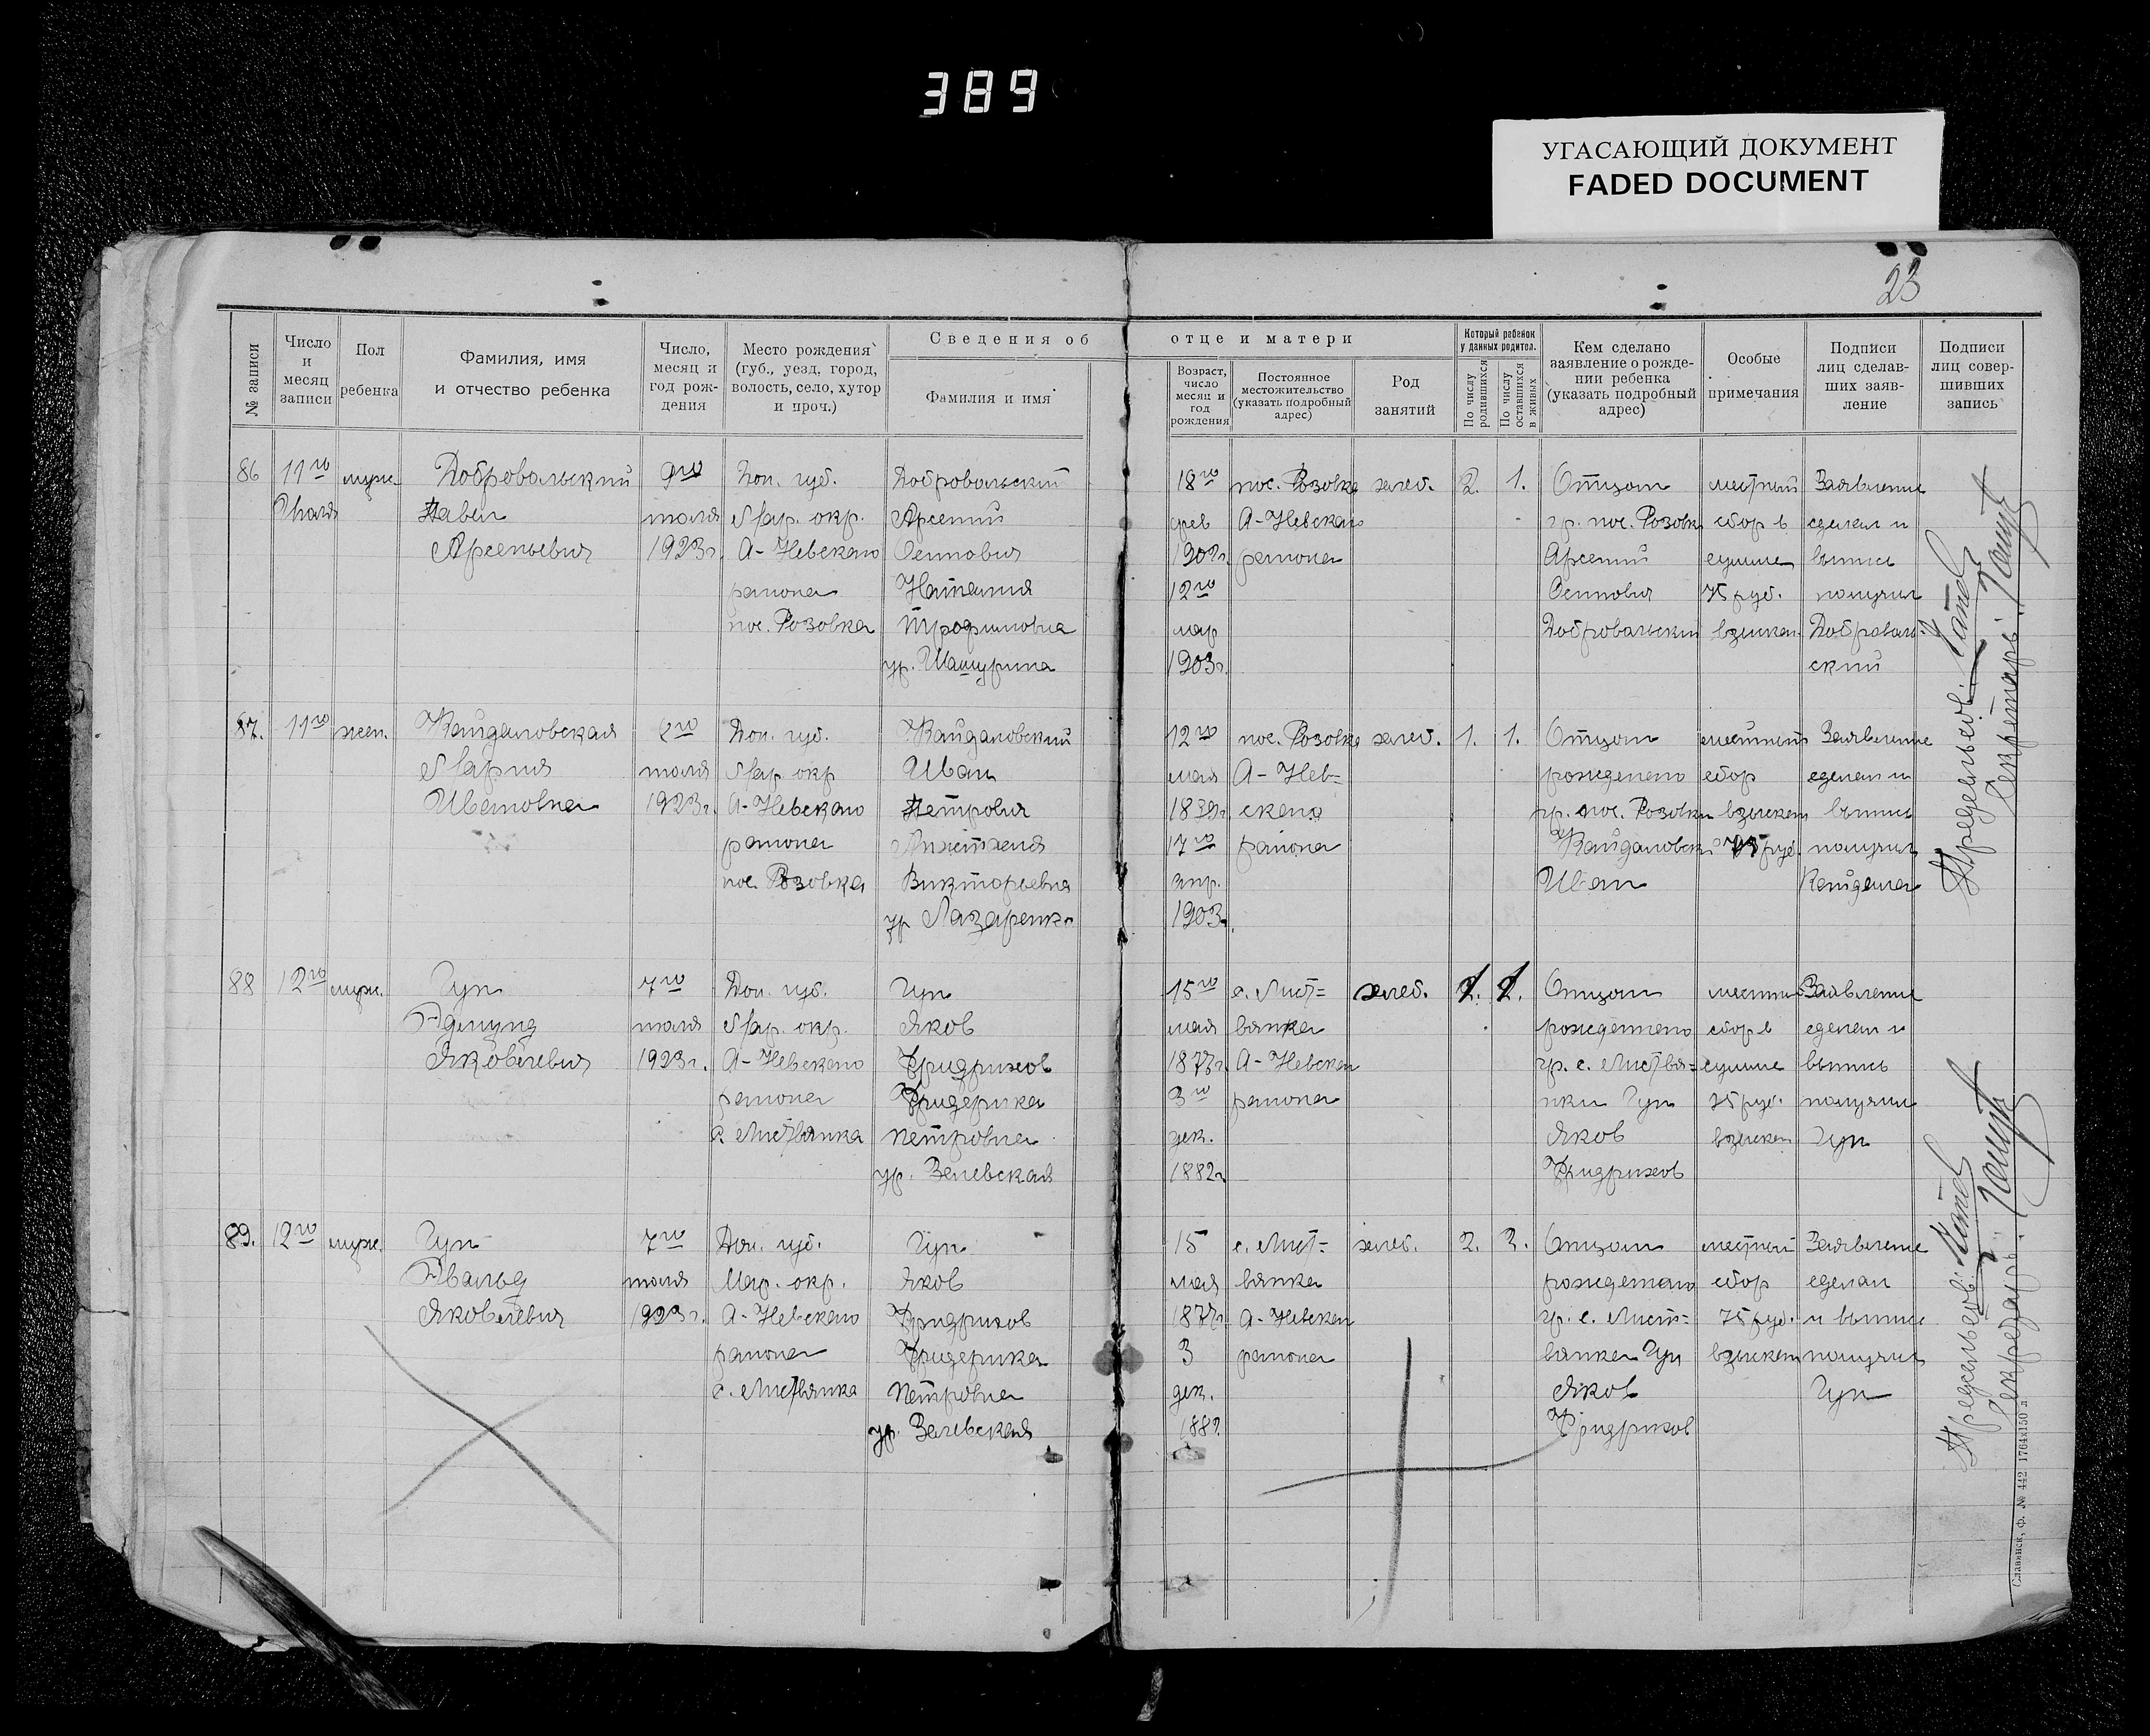 389
УГАСАЮЩИЙ ДОКУМЕНТ
FADED DOCUMENT
23
№ записи
Число и месяц записи
Пол ребенка
Фамилия, имя и отчество ребенка
Число, месяц и год рождения
Место рождения (губ., уезд, город, волость, село, хутор и проч.)
Сведения об отце и матери
Фамилия и имя
Возраст, число месяц и год рождения
Постоянное местожительство (указать подробный адрес)
Род занятий
Который ребенок у данных родител.
По числу родившихся
По числу оставшихся в живых
Кем сделано заявление о рождении ребенка (указать подробный адрес)
Особые примечания
Подписи лиц сделавших заявление
Подписи лиц совершивших запись
86 11го муж. Добровальский 9го Дон. губ. Добровальский 18го пос. Розовка хлеб. 2. 1. Отцом местный Заявление
Июля Павел июля Мар. окр. Арсений фев А-Невского гр. пос. Розовк сбор в сделал и
Арсеньевич 1923г. А-Невского Осипович 1902г. района Арсений сумме выпись
района Наталия 12го Осипович 75 руб. получил
пос. Розовка Трофимовна мар Добровальский взыскан Доброваль
ур. 1903г. ский
87. 11го жен. Кайдановская Дон. губ. Кайдановский 12го пос. Розовка хлеб. 1. 1. Отцом местный Заявление
Мария июля Мар. окр Иван мая А-Нев- рожденного сбор сделал и
Ивановна 1923г. А-Невского Петрович ского гр. пос. Розовки взыскан выпись
района 17го района Кайдановск 75 руб. получил
пос. Розовка Викторьевна апр. Иван Кайданов
ур Лазаренко 1903г.
88 12го муж. Гун 7го Дон. губ. Гун 15го с. Лист- хлеб. 2. 2. Отцом местный Заявление
Эдмунд июля Мар. окр. Яков мая вянка рожденного сбор в сделал и
Яковлевич 1923г. А-Невского Фридрихов 1877г. А-Невског гр. с. Листвя- сумме выпись
района Фридерика 3го района нки Гун 75 руб. получил
с Листвянка Петровна дек. Яков взыскан Гун
ур. Зелевская 1882г Фридрихов
89. 12го муж. Гун 7го Дон. губ. Гун 15 с. Лист- хлеб. 2. 3. Отцом местный Заявление
Эвальд июля Мар. окр. Яков мая вянка рожденного сбор сделал
Яковлевич 1923г. А-Невского Фридрихов 1877г. А-Невског гр. с. Лист- 75 руб. и выпись
района Фридерика 3 района вянка Гун взыскан получил
с. Листвянка Петровна дек. Яков Гун
ур. Зелевская 1882 Фридрихов
Секретарь:
Славянск, ф. № 442 1764x150 л